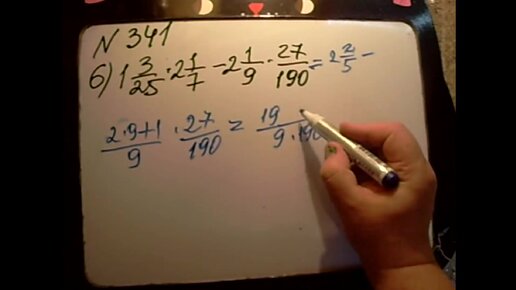 N 341
б) 1 3/25 · 2 1/7 - 2 1/9 · 27/190 = 2 2/5 -
2·9+1/9 · 27/190 = 19/9·190